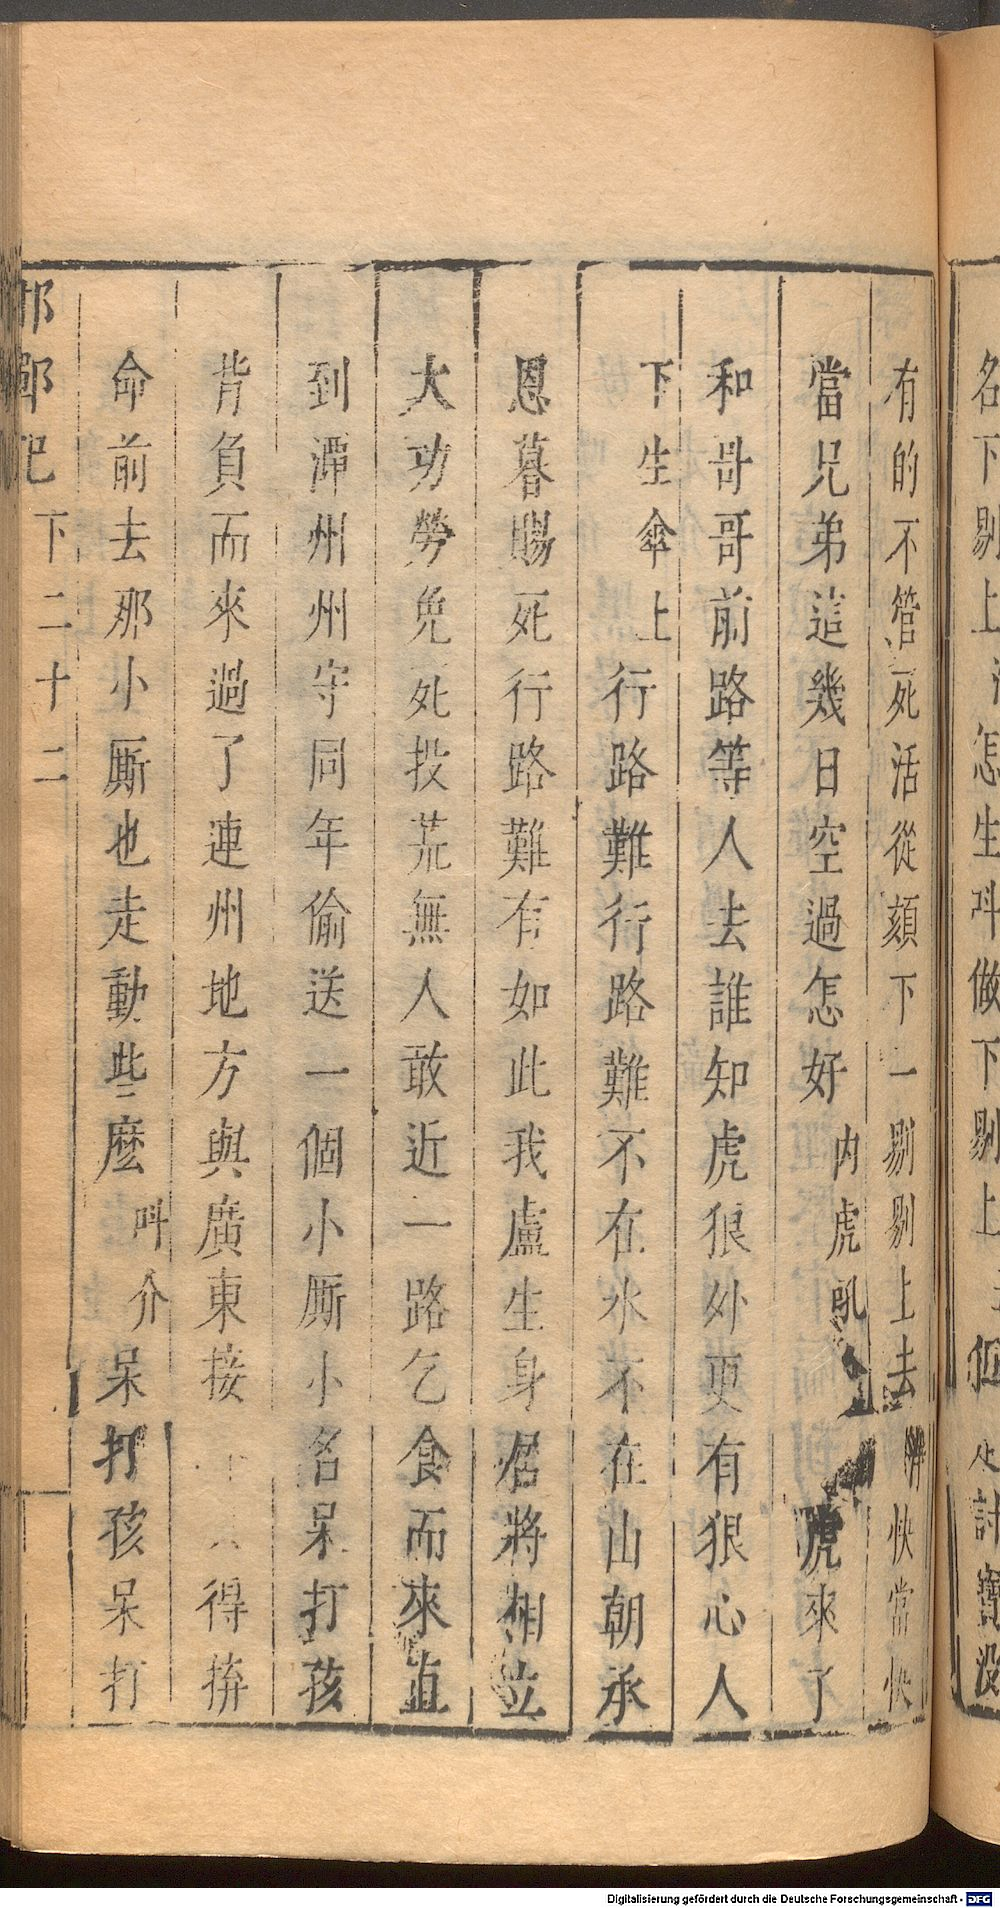 名下剔上
怎生呌做下剔上
計寶没
有的不管死活從頦下一剔剔上去
快當快
當兄弟這幾日空過怎好内虎吼
虎來了
和哥哥前路等人去誰知虎狼外更有狠心人
下生傘上行路難行路難不在水不在山朝承
恩暮賜死行路難有如此我盧生身居將相立
大功勞免死投荒無人敢近一路乞食而來直
到潭州州守同年偷送一個小厮小名呆打孩
背負而來過了連州地方與廣東接
得拚
命前去那小厮也走動些麼呌介呆打孩呆打
邯鄲記
下二十二
Digitalisierung gefördert durch die Deutsche Forschungsgemeinschaft - DFG